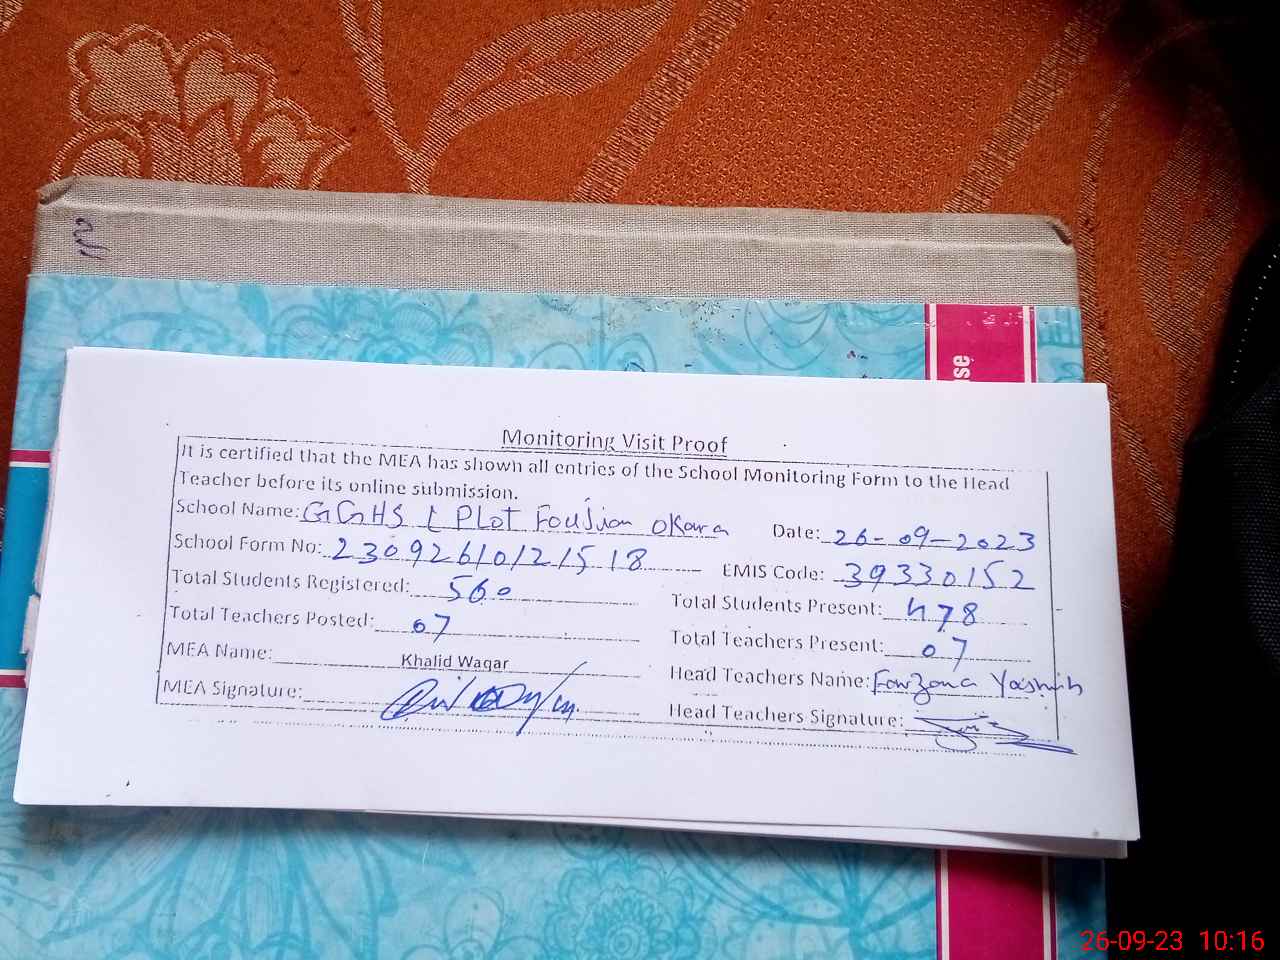 use
Monitoring Visit Proof
It is certified that the MEA has shown all entries of the School Monitoring Form to the Head
Teacher before its online submission.
School Name: GGHS L PLOT Foujian Okara Date: 26-09-2023
School Form No: 23092610121518 EMIS Code: 39330152
Total Students Registered: 560 Total Students Present: 478
Total Teachers Posted: 07 Total Teachers Present: 07
MEA Name: Khalid Waqar Head Teachers Name: Fowzana Yasmin
MEA Signature: Head Teachers Signature:
26-09-23 10:16